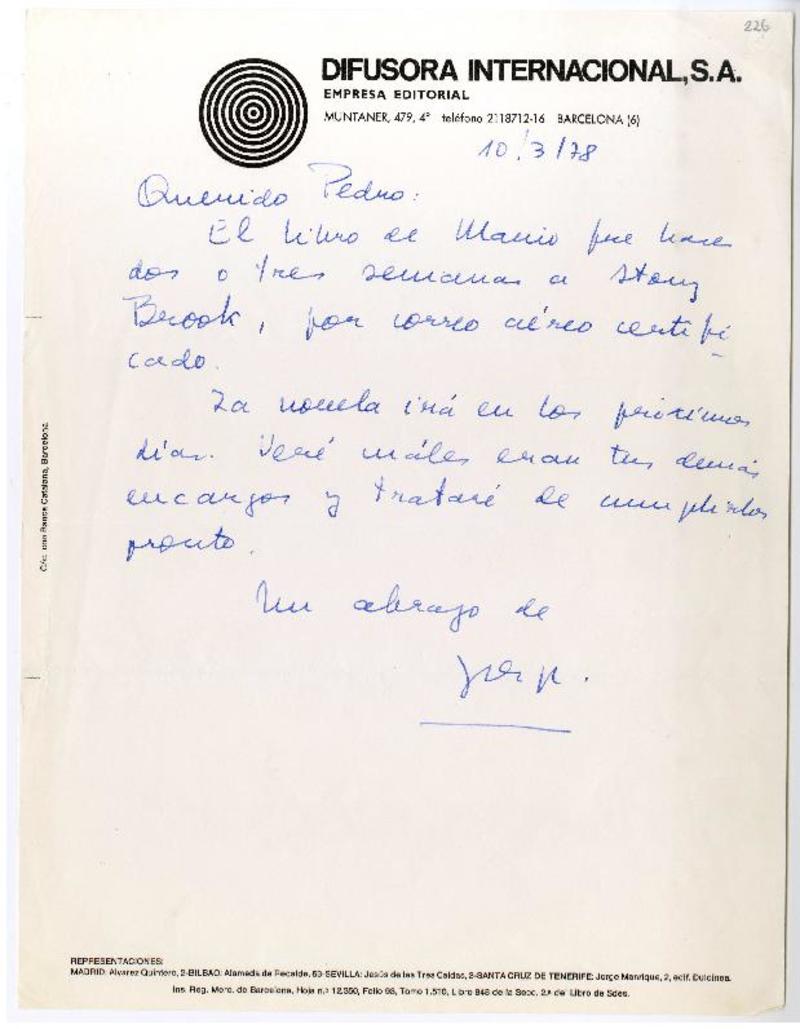 226
DIFUSORA INTERNACIONAL, S.A.
EMPRESA EDITORIAL
MUNTANER, 479, 4º teléfono 2118712-16 BARCELONA (6)
10/3/78
Querido Pedro:
El libro de Mario fue hace
dos o tres semanas a Stony
Brook, por correo aéreo certifi
cado.
La novela irá en los próximos
días. Veré cuáles eran tus demás
encargos y trataré de cumplirlos
pronto.
Un abrazo de
Jorge.
Banca Catalana, Barcelona
REPRESENTACIONES:
MADRID: Alvarez Quintero, 2-BILBAO: Alameda de Recalde, 63-SEVILLA: Jesús de las Tres Caídas, 2-SANTA CRUZ DE TENERIFE: Jorge Manrique, 2, edif. Dulcinea.
Ins. Reg. Merc. de Barcelona, Hoja n.º 12.350, Folio 93, Tomo 1.510, Libro 948 de la Secc. 2.ª del Libro de Sdes.